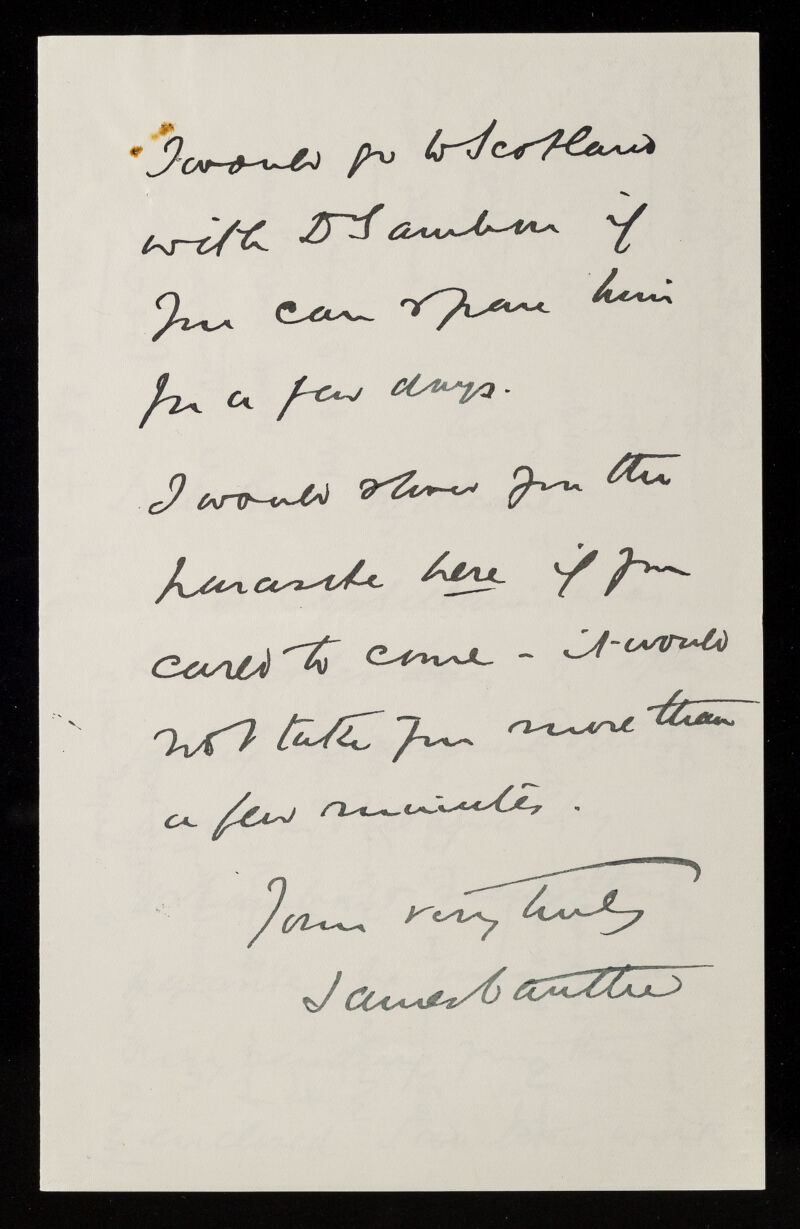 I would go to Scotland
with Dr Sambon if
you can spare him
for a few days.
I would show you the
parasite here if you
cared to come - it would
not take you more than
a few minutes.
Yours very truly
James Cantlie